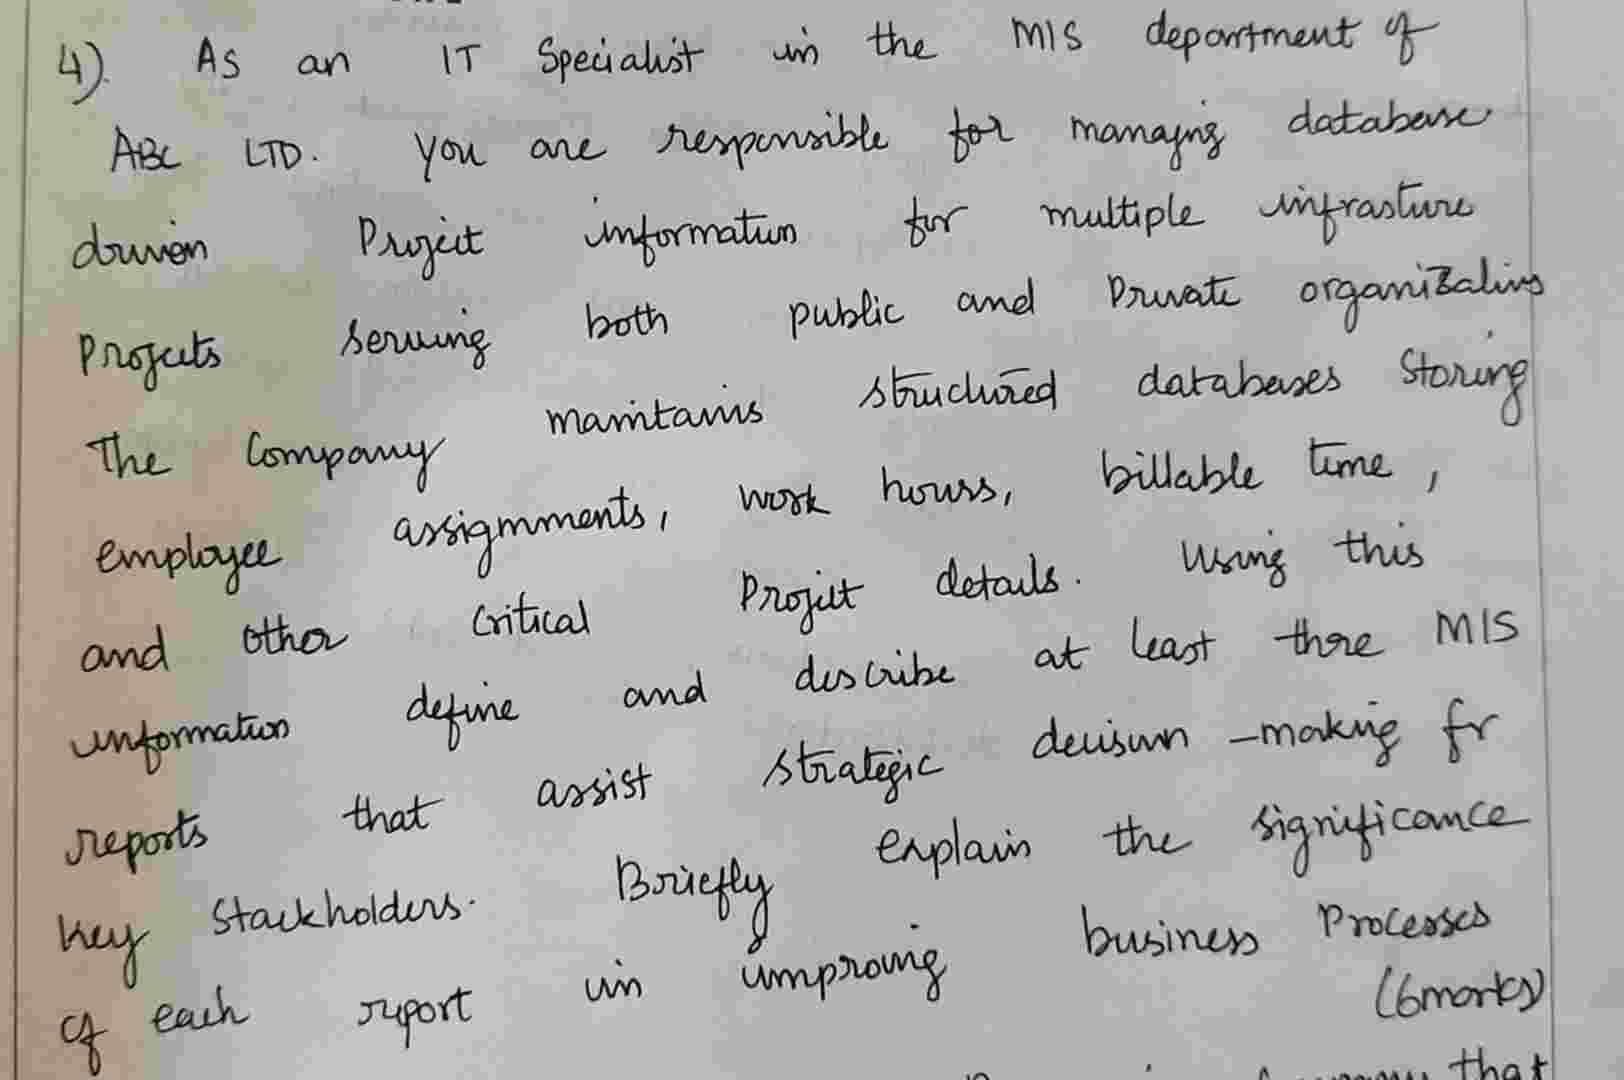 4). As an IT Specialist in the MIS department of
ABC LTD. you are responsible for managing database
driven Project information for multiple infrasture
Projects serving both public and Private organizations
The Company maintains structured databases Storing
employee assignments, work hours, billable time,
and other critical Project details. Using this
information define and describe at least three MIS
reports that assist strategic decision-making fr
key Stackholders. Briefly explain the significance
of each report in improving business Processes
(6marks)
that